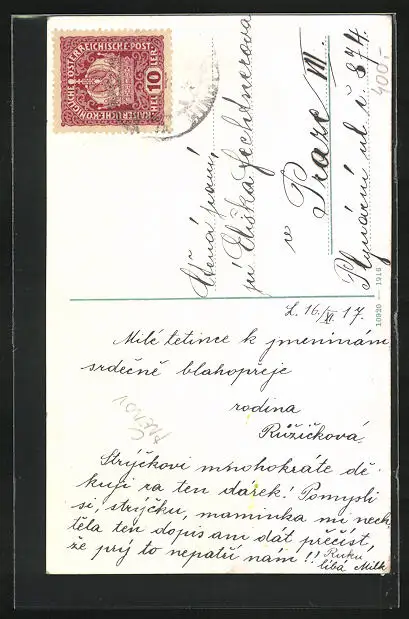 KAISERLICHE KÖNIGLICHE ÖSTERREICHISCHE POST
10 HELLER
400,-
Ctěná paní,
pí Eliška Fechtnerova
ve
Praze VII.
Plynární ul. č. 874
10920 — 1916
L. 16./XI. 17.
Milé tetince k jmeninám
srdečně blahopřeje
rodina
Růžičková.
Strýčkovi mnohokráte dě-
kuji za ten dárek! Pomysli
si, strýčku, maminka mi nech
těla ten dopis ani dát přečíst,
že prý to nepatří nám!! Ruku
líbá Milk